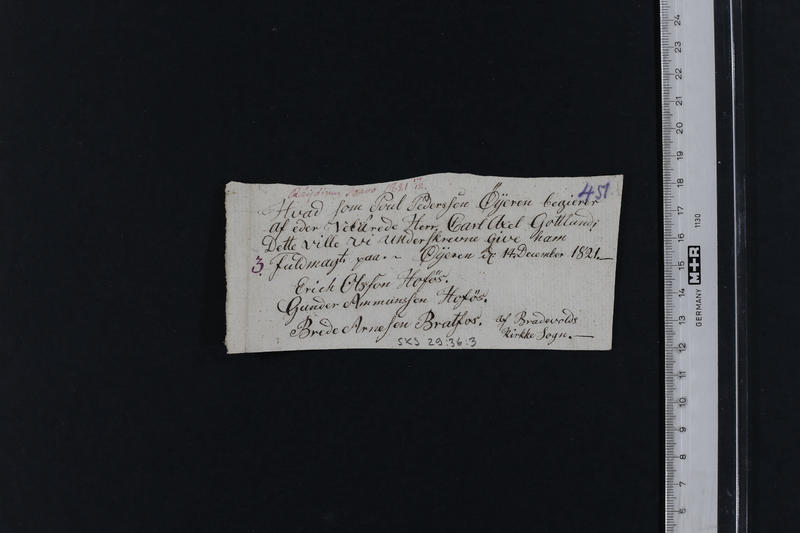 1821
451
Hvad som Poul Pedersøn Öÿeren begiærer
af eder Velærede Herr Carl Axel Gottlund;
Dette ville vi Underskrevne Give ham
3. Fuldmagt paa. - Öÿeren d 14 December 1821.
Erich Olsson Hofös.
Gunder Ammunssen Hofös.
Brede Arnesen Bratfos. af Bradevolds
Kirkke Sogn.
SKS 29:36:3
24
23
22
21
20
19
18
17
16
15
14
13
12
11
10
9
8
7
6
GERMANY M+R 1130